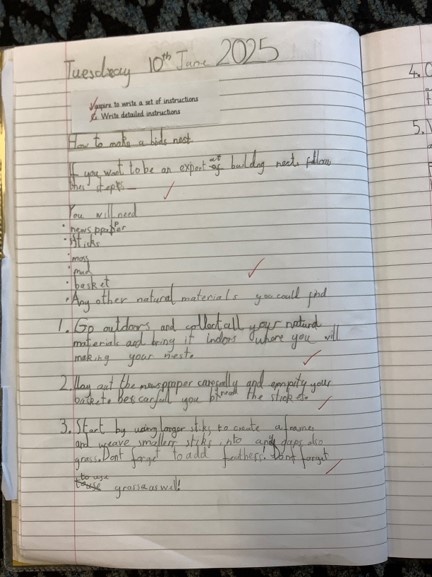 Tuesday 10th June 2025
Prepare to write a set of instructions
Write detailed instructions
How to make a birds nest
If you want to be an expert at building nest, follow
this steps
You will need
newsppaper
Sticks
mos
mud
basket
Any other natural materials you could find
4.
5.
1. Go outdoors and collect all your natural
materials and bring it indors where you will
making your nest.
2. Lay out the newspaper carefully and empety your
basket. be carfull you the sticks.
3. Start by using longer sticks to create a frame
and weave smallerr sticks into any gaps also
grass. Dont forget to add feathers! Dont forget
to use grass as well!